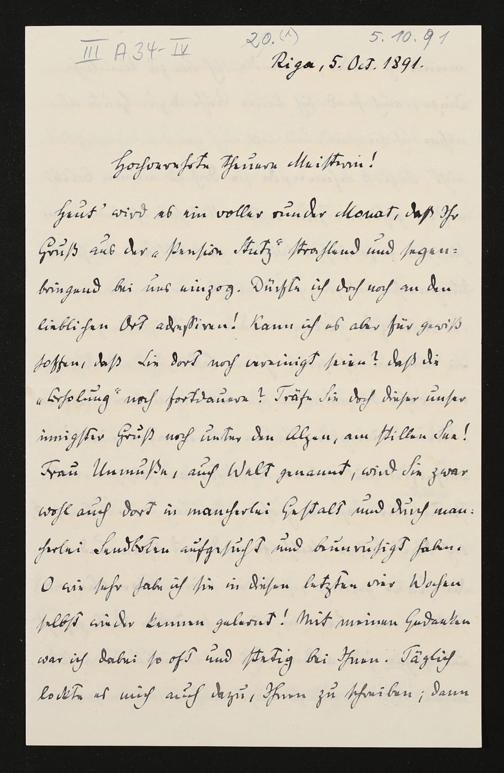 III A 34-IV
20.(1)
5.10.91
Riga, 5. Oct. 1891.
Hochverehrte theuere Meisterin!
Heut' wird es ein voller runder Monat, daß Ihr
Gruß aus der „Pension Stutz“ strahlend und segen=
bringend bei uns einzog. Dürfte ich doch noch an den
lieblichen Ort adressiren! Kann ich es aber für gewiß
hoffen, daß Sie dort noch vereinigt seien? daß die
„Erholung“ noch fortdauere? Träfe Sie doch dieser unser
innigster Gruß noch unter den Alpen, am stillen See!
Frau Unmuße, auch Welt genannt, wird Sie zwar
wohl auch dort in mancherlei Gestalt und durch man=
cherlei Sendboten aufgesucht und beunruhigt haben.
O wie sehr habe ich sie in diesen letzten vier Wochen
selbst wieder kennen gelernt! Mit meinen Gedanken
war ich dabei so oft und stetig bei Ihnen. Täglich
lockte es mich auch dazu, Ihnen zu schreiben; denn